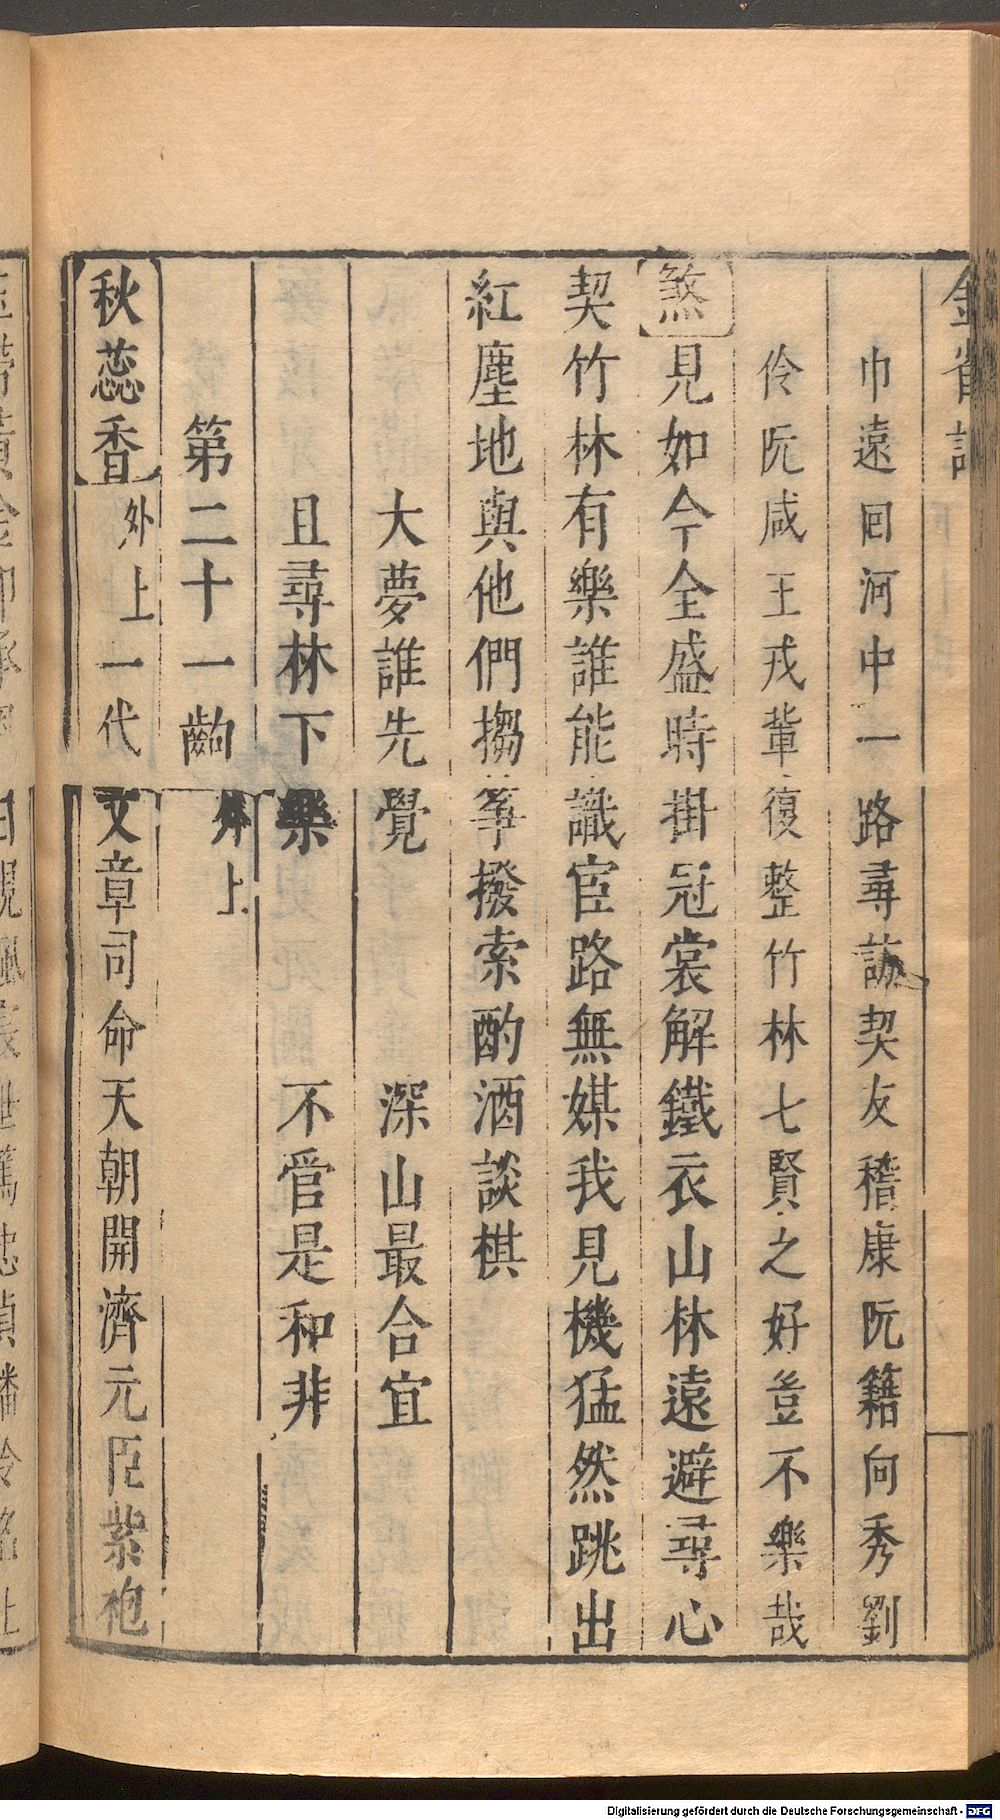 金雀記
巾遠回河中一路尋訪契友稽康阮籍向秀劉
伶阮咸王戎輩復整竹林七賢之好豈不樂哉
煞見如今全盛時掛冠裳解鐵衣山林遠避尋心
契竹林有樂誰能識宦路無媒我見機猛然跳出
紅塵地與他們搊箏撥索酌酒談棋
大夢誰先覺 深山最合宜
且尋林下樂 不管是和非
第二十一齣 外上
秋蕊香 外上 一代文章司命天朝開濟元臣紫袍
Digitalisierung gefördert durch die Deutsche Forschungsgemeinschaft - DFG